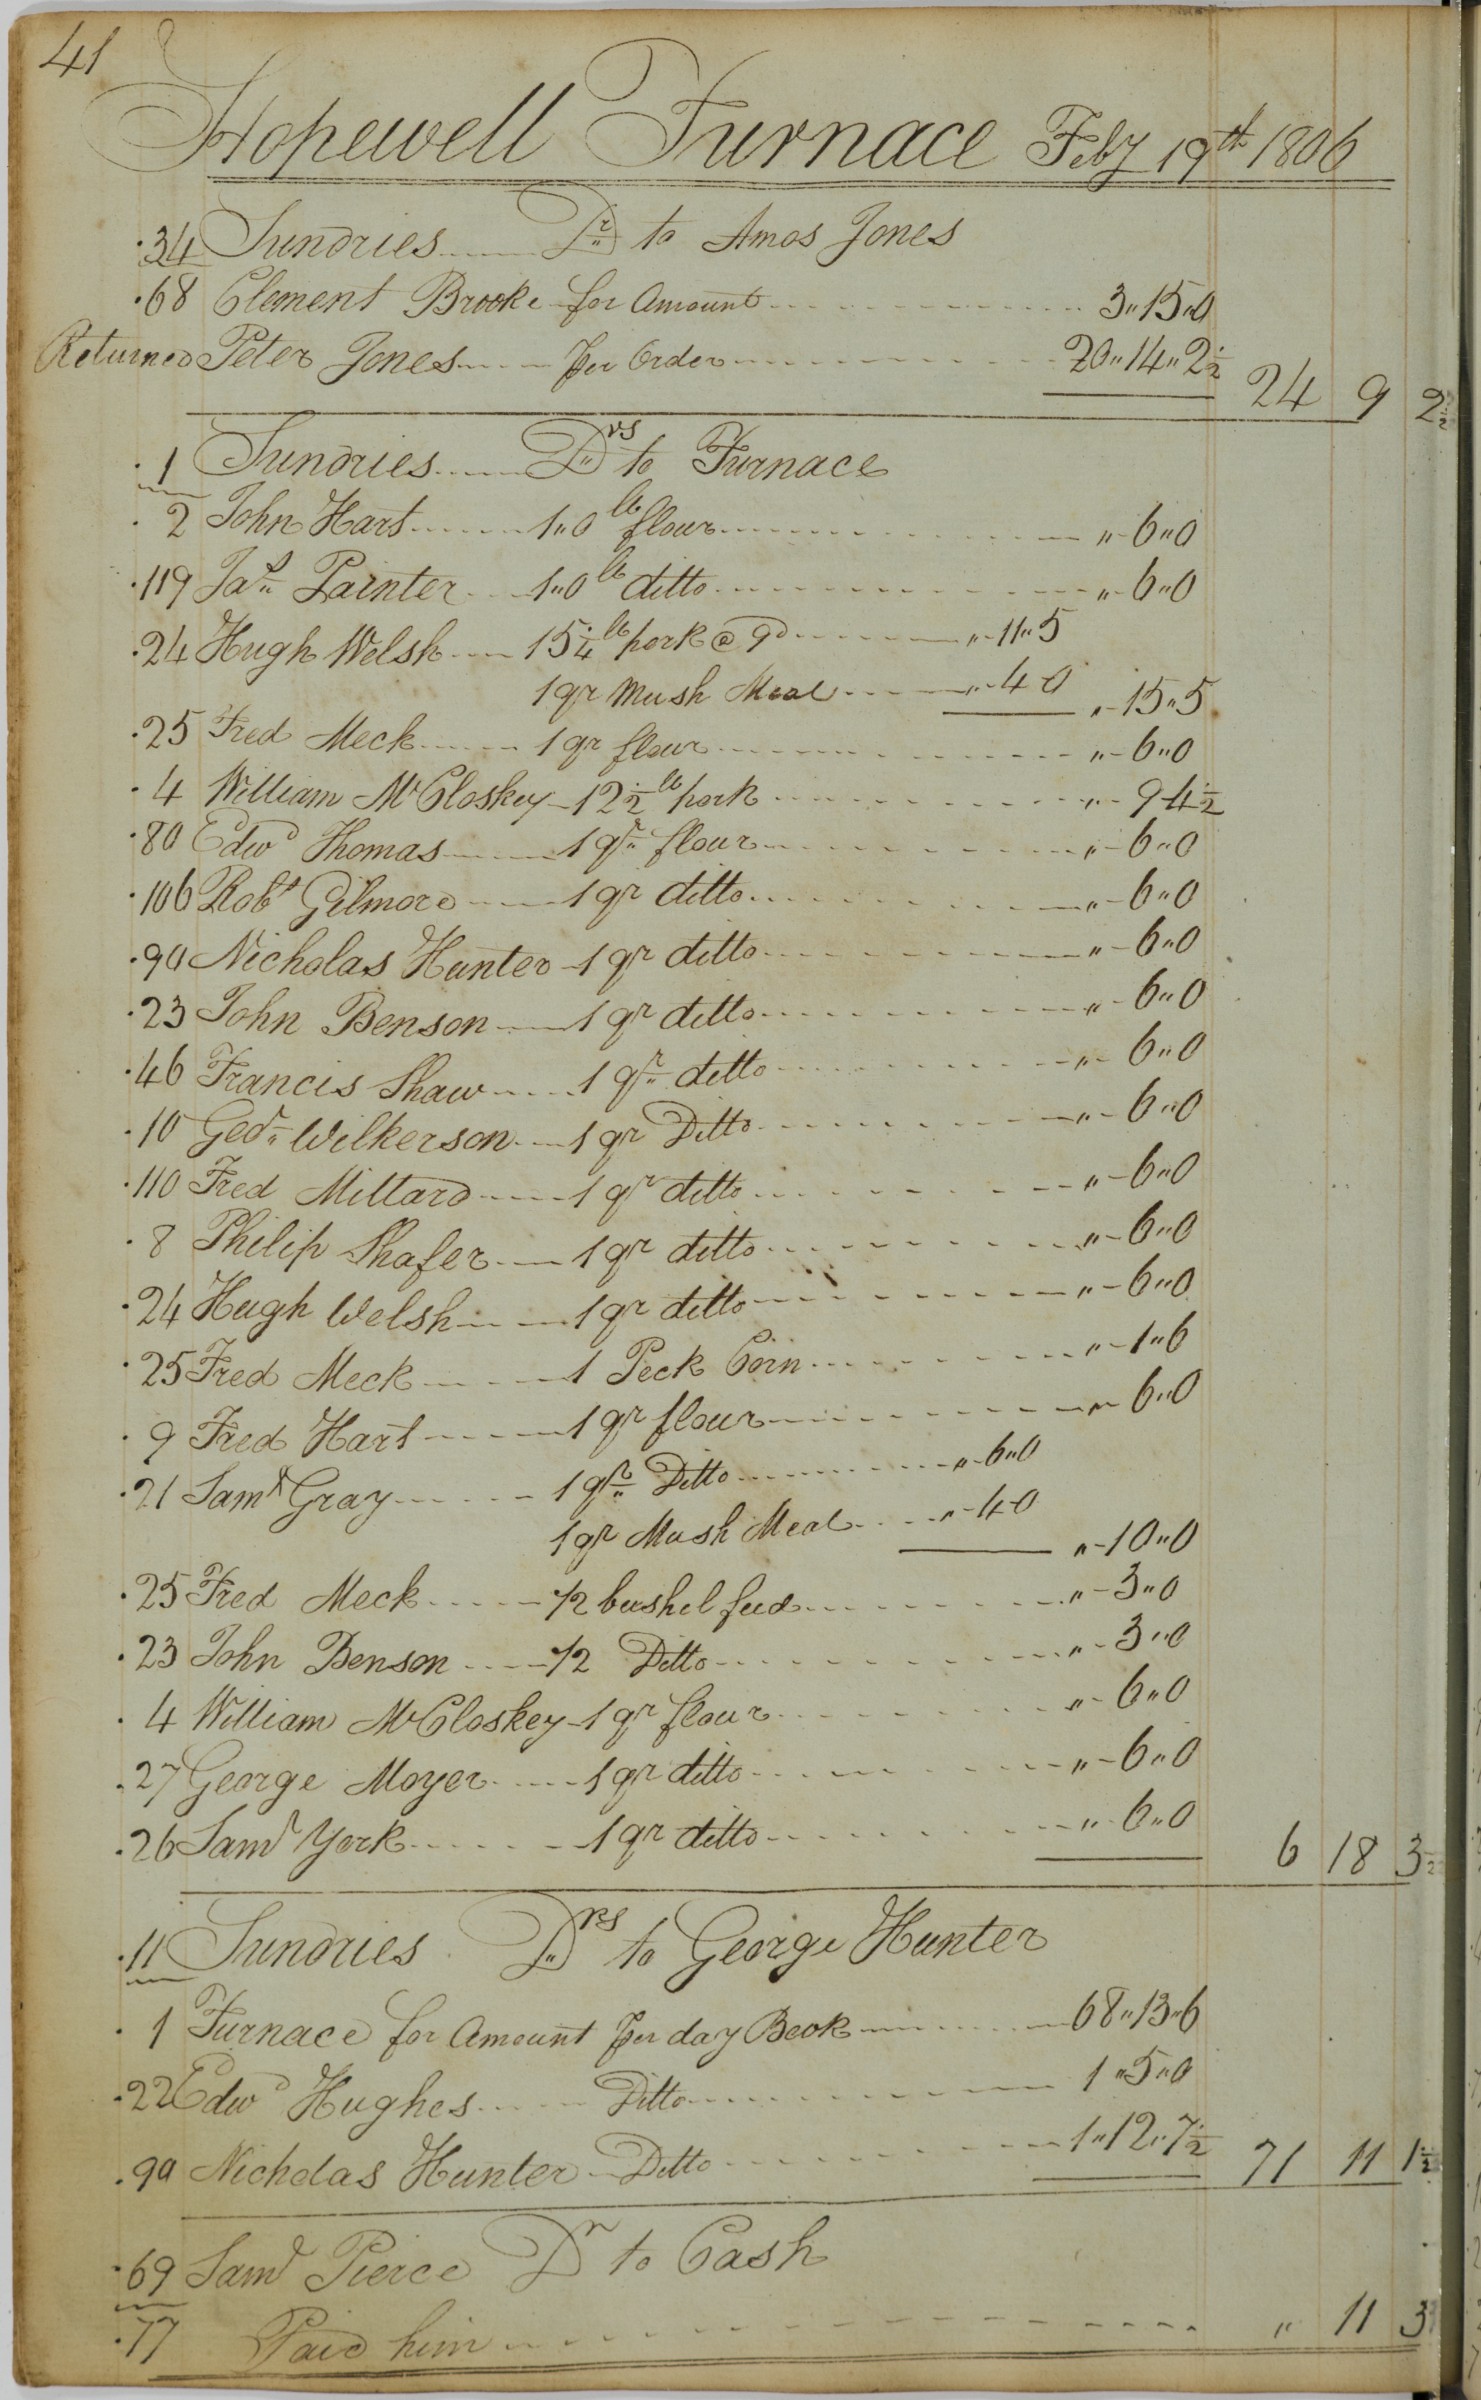 41
Hopewell Furnace Feby 19th 1806
34 Sundries Dr to Amos Jones
68 Clement Brooke for Amount 3"15"0
Returned Peter Jones per Order 20"14"2½ 24 9 2½
1 Sundries Drs to Furnace
2 John Hart 1"0 lb flour "-6"0
119 Jas Painter 1"0 lb ditto "-6"0
24 Hugh Welsh 15¼ lb pork @ 9d "-11"5
1 qr Mush Meal "-4-0 "-15"5
25 Fred Meck 1 qr flour "-6"0
4 William McCloskey 12½ lb pork "-9-4½
80 Edwd Thomas 1 qr flour "-6"0
106 Robt Gilmore 1 qr ditto "-6"0
90 Nicholas Hunter 1 qr ditto "-6"0
23 John Benson 1 qr ditto "-6"0
46 Francis Shaw 1 qr ditto "-6"0
10 Geor Wilkerson 1 qr Ditto "-6"0
110 Fred Millard 1 qr ditto "-6"0
8 Philip Shafer 1 qr ditto "-6"0
24 Hugh Welsh 1 qr ditto "-6"0
25 Fred Meck 1 Peck Corn "-1"6
9 Fred Hart 1 qr flour "-6"0
21 Saml Gray 1 qr Ditto "-6"0
1 qr Mush Meal "-4-0 "-10"0
25 Fred Meck 1/2 bushel feed "-3"0
23 John Benson 1/2 Ditto "-3"0
4 William McCloskey 1 qr flour "-6"0
27 George Moyer 1 qr ditto "-6"0
26 Saml York 1 qr ditto "-6"0 6 18 3½
11 Sundries Drs to George Hunter
1 Furnace for Amount per day Book 68"13"6
22 Edwd Hughes Ditto 1"5"0
90 Nicholas Hunter Ditto 1"12"7½ 71 11 1½
69 Saml Pierce Dr to Cash
77 Paid him " 11 3